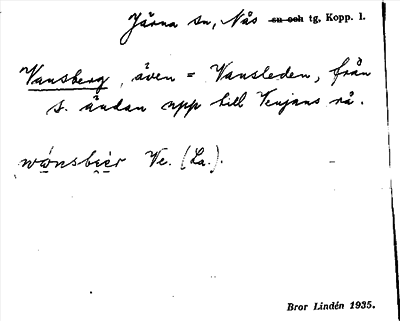 Järna sn, Nås sn och tg, Kopp. l.
Vansberg, även = Vansleden, från
s. ändan upp till Venjans rå.
wónsbèr Ve. (La.).
Bror Lindén 1935.